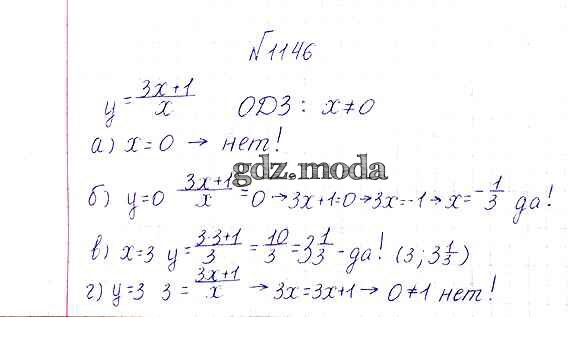 №1146
y = (3x+1)/x ОДЗ: x≠0
а) x=0 → нет!
gdz.moda
б) y=0 (3x+1)/x = 0 → 3x+1=0 → 3x=-1 → x=-1/3 да!
в) x=3 y = (3·3+1)/3 = 10/3 = 3 1/3 - да! (3; 3 1/3)
г) y=3 3 = (3x+1)/x → 3x=3x+1 → 0≠1 нет!